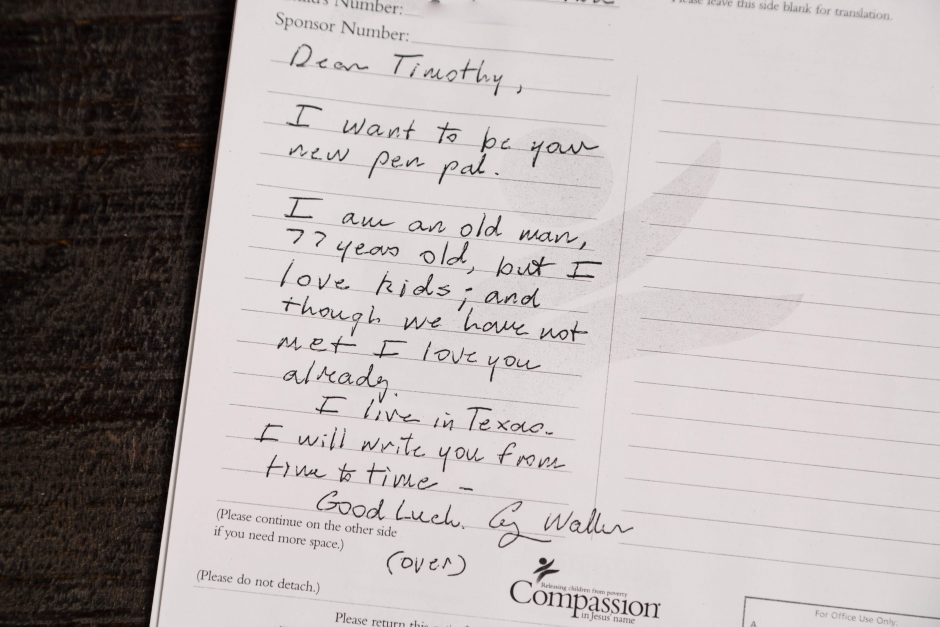 Number:
Please leave this side blank for translation.
Sponsor Number:
Dear Timothy,
I want to be your
new pen pal.
I am an old man,
77 years old, but I
love kids; and
though we have not
met I love you
already.
I live in Texas.
I will write you from
time to time –
Good Luck. Cy Waller
(Please continue on the other side
if you need more space.)
(over)
(Please do not detach.)
Releasing children from poverty
Compassion
in Jesus' name
For Office Use Only:
Please return this
A